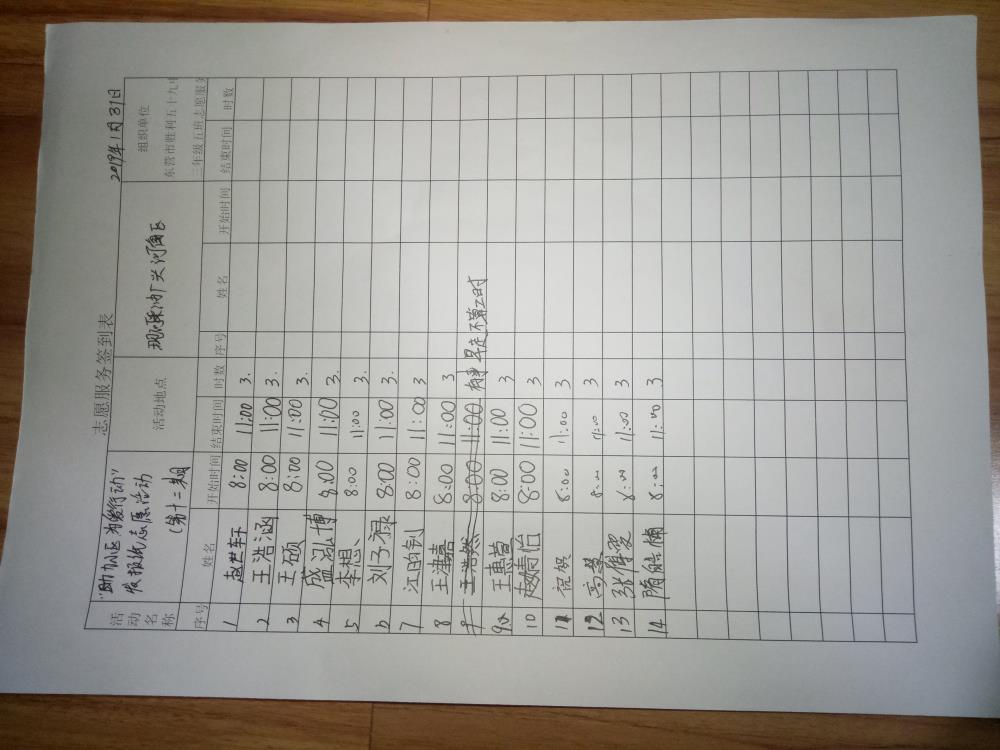 志愿服务签到表
2019年1月31日
活动名称 "助力小区 为爱行动" 发报纸志愿活动 (第十二期) 活动地点 现河采油厂 河南区 组织单位 东营市胜利五十九中 三年级五班志愿服
序号 姓名 开始时间 结束时间 时数 序号 姓名 开始时间 结束时间 时数
1 赵世轩 8:00 11:00 3.
2 王浩涵 8:00 11:00 3.
3 王硕 8:00 11:00 3.
4 盛泓博 8:00 11:00 3.
5 李想 8:00 11:00 3.
6 刘子禄 8:00 11:00 3.
7 江 8:00 11:00 3
8 王 8:00 11:00 3
9 王浩然 8:00 11:00 有事早走不算工时
9 王惠萱 8:00 11:00 3
10 赵婧怡 8:00 11:00 3
11 8:00 11:00 3
12 高 8:00 11:00 3
13 张 8:00 11:00 3
14 隋皓 8:00 11:00 3